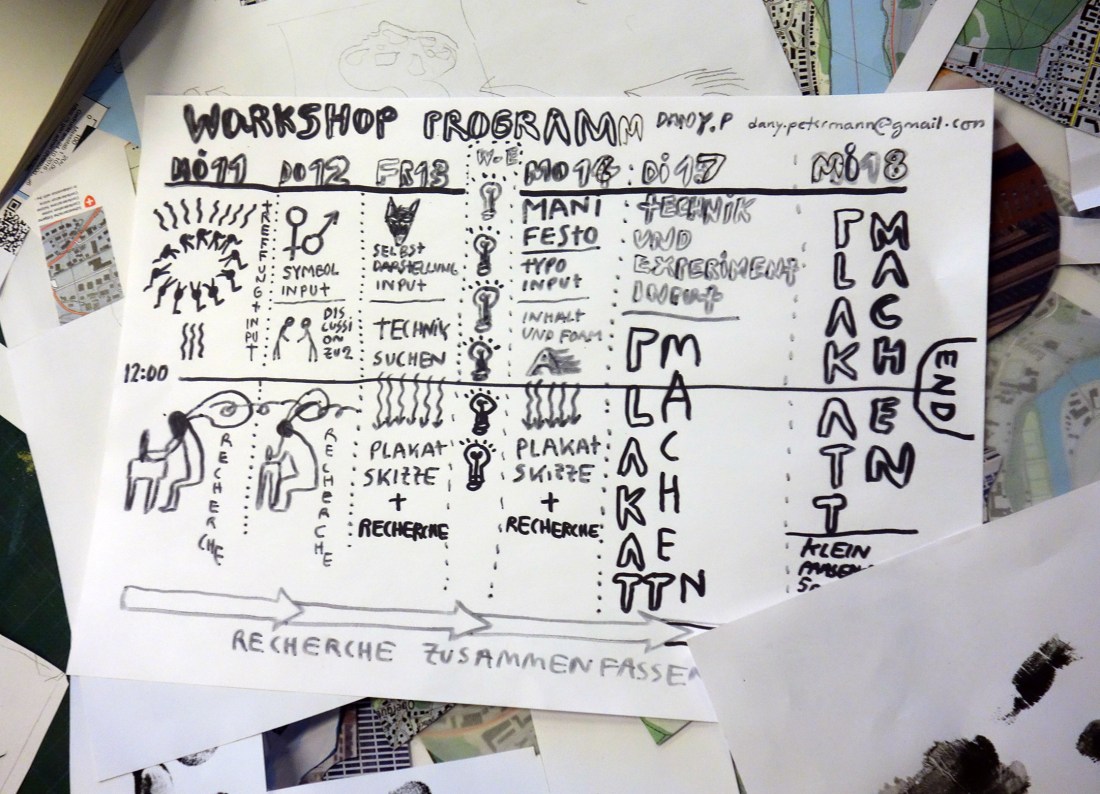 WORKSHOP PROGRAMM DANY.P dany.petermann@gmail.com
Mi11 DO12 FR13 W.E MO16 Di17 Mi18
TREFFUNG+INPUT
SYMBOL
INPUT
DIS
CUSSI
ON
ZU2
SELBST
DARSTELLUNG
INPUT
TECHNIK
SUCHEN
MANI
FESTO
TYPO
INPUT
INHALT
UND FORM
A
TECHNIK
UND
EXPERIMENT
INPUT
PLAKATT
MACHEN
PLAKATT
MACHEN
END
12:00
RECHERCHE
RECHERCHE
PLAKAT
SKIZZE
+
RECHERCHE
PLAKAT
SKIZZE
+
RECHERCHE
KLEIN
RECHERCHE ZUSAMMENFASSEN